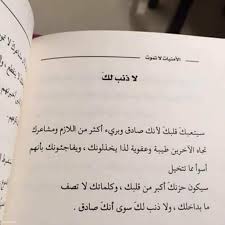 الأمنيات لا تموت
لا ذنب لكَ
سيتعبك قلبك لأنك صادق وبريء أكثر من اللازم ومشاعرك
تجاه الآخرين طيبة وعفوية لذا يخذلونك ، ويفاجئونك بأنهم
أسوأ مما تتخيل
سيكون حزنك أكبر من قلبك ، وكلماتك لا تصف
ما بداخلك ، ولا ذنب لكَ سوى أنك صادق .